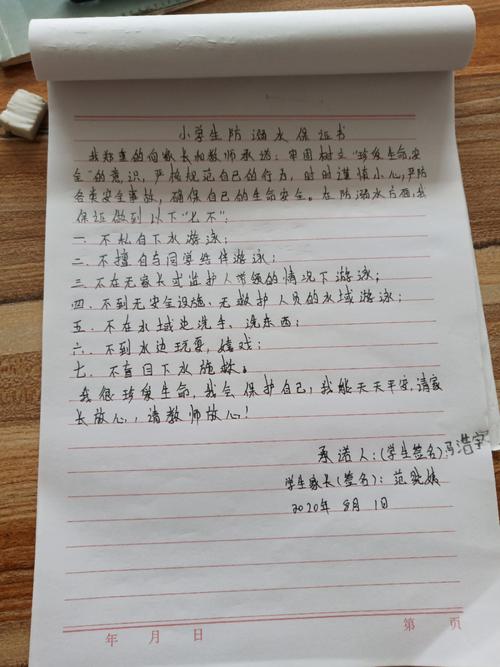 小学生防溺水保证书
我郑重的向家长和教师承诺：牢固树立"珍爱生命，安
全"的意识，严格规范自己的行为，时时谨慎小心，严防
各类安全事故，确保自己的生命安全。在防溺水方面，我
保证做到以下"七不"：
一、不私自下水游泳；
二、不擅自与同学结伴游泳；
三、不在无家长或监护人带领的情况下游泳；
四、不到无安全设施、无救护人员的水域游泳；
五、不在水域边洗手、洗东西；
六、不到水边玩耍，嬉戏；
七、不盲目下水施救。
我很珍爱生命，我会保护自己，我能天天平安，请家
长放心，请教师放心！
承诺人：（学生签名）冯浩宇
学生家长（签名）：范
2020年8月1日
年 月 日
第 页